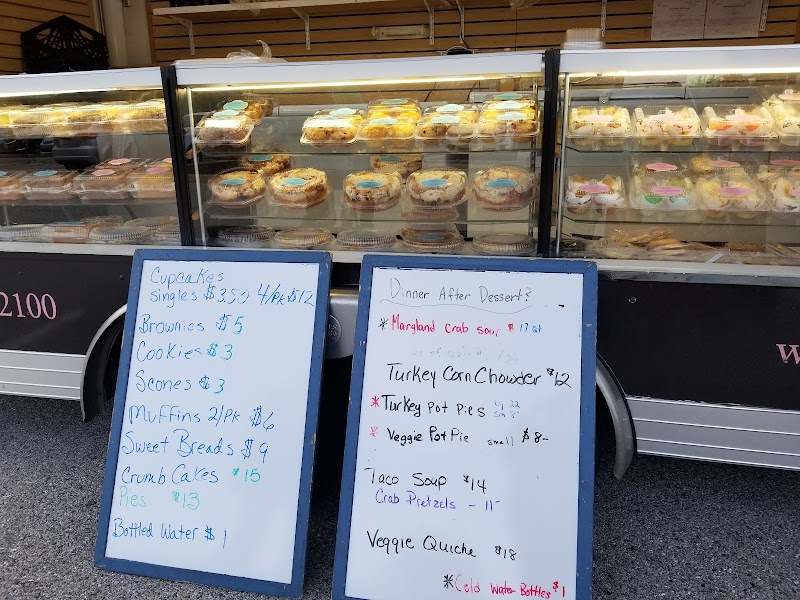 Cupcakes
singles $3.50 4/PK $12
Brownies $5
Cookies $3
Scones $3
Muffins 2/PK $6
Sweet Breads $9
Crumb Cakes $15
Pies $13
Bottled Water $1
Dinner After Dessert?
*Maryland Crab Soup $17 qt
Turkey Corn Chowder $12
*Turkey Pot Pies Lg 22
Sm 8-
*Veggie Pot Pie small $8-
Taco Soup $14
Crab Pretzels - 11-
Veggie Quiche $18
*Cold Water Bottles $1
2100
W